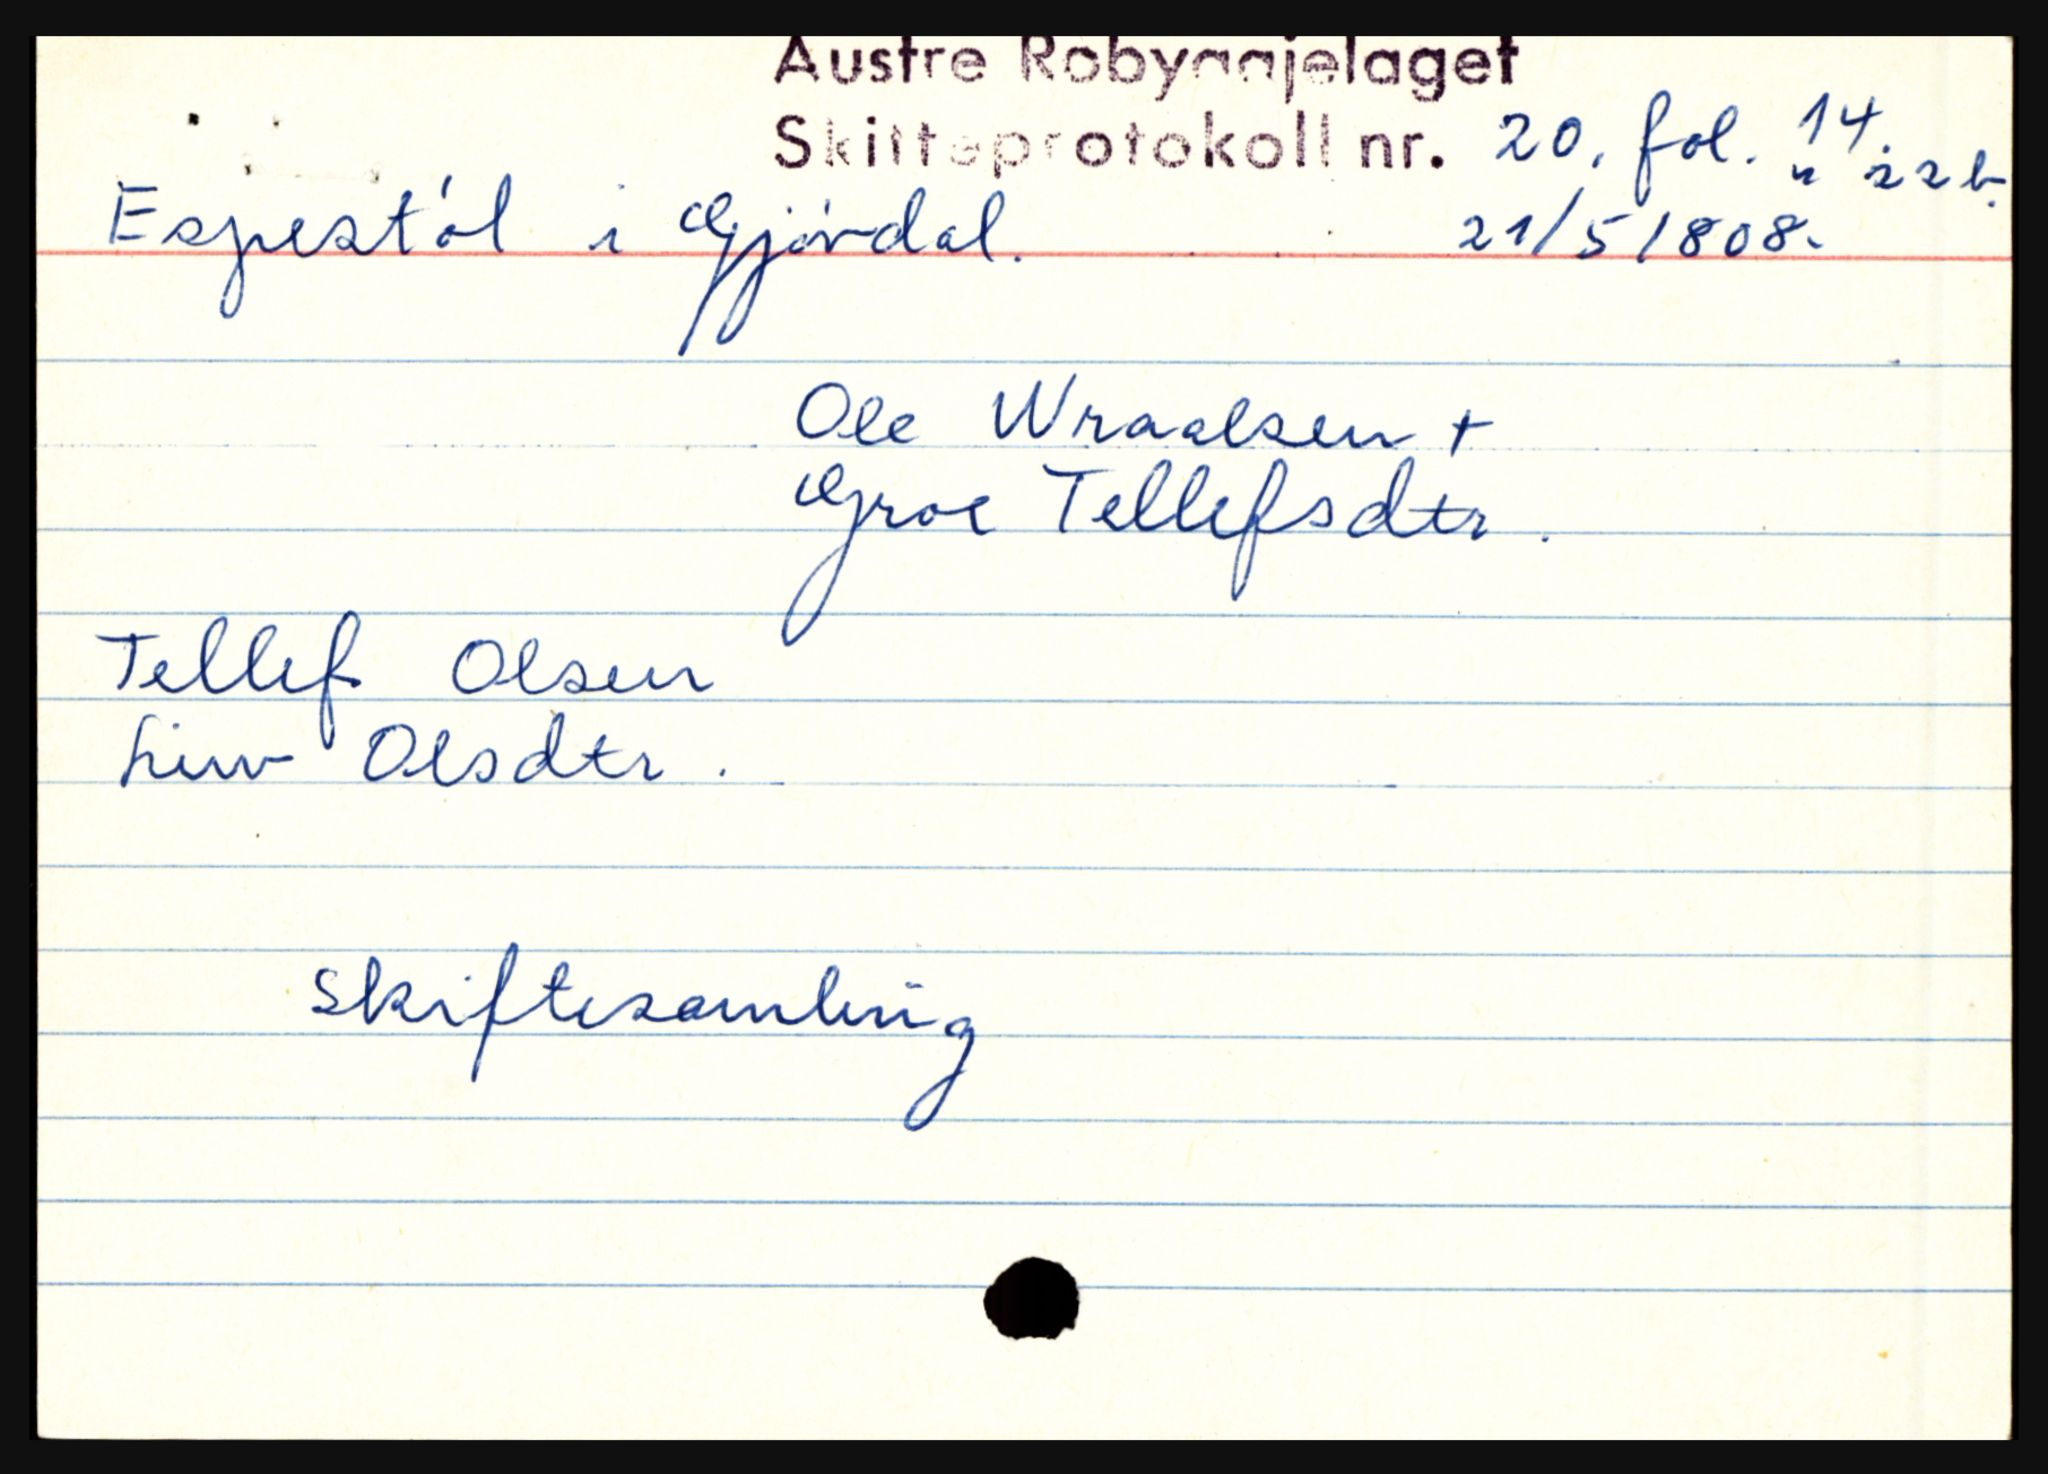 Austre Robyggjelaget
Skifteprotokoll nr. 20. fol. 14.
" 22b.
Espestøl i Gjøvdal. 21/5 1808.
Ole Wraalsen +
Groe Tellefsdtr.
Tellef Olsen
Liwv Olsdtr.
Skiftesamling